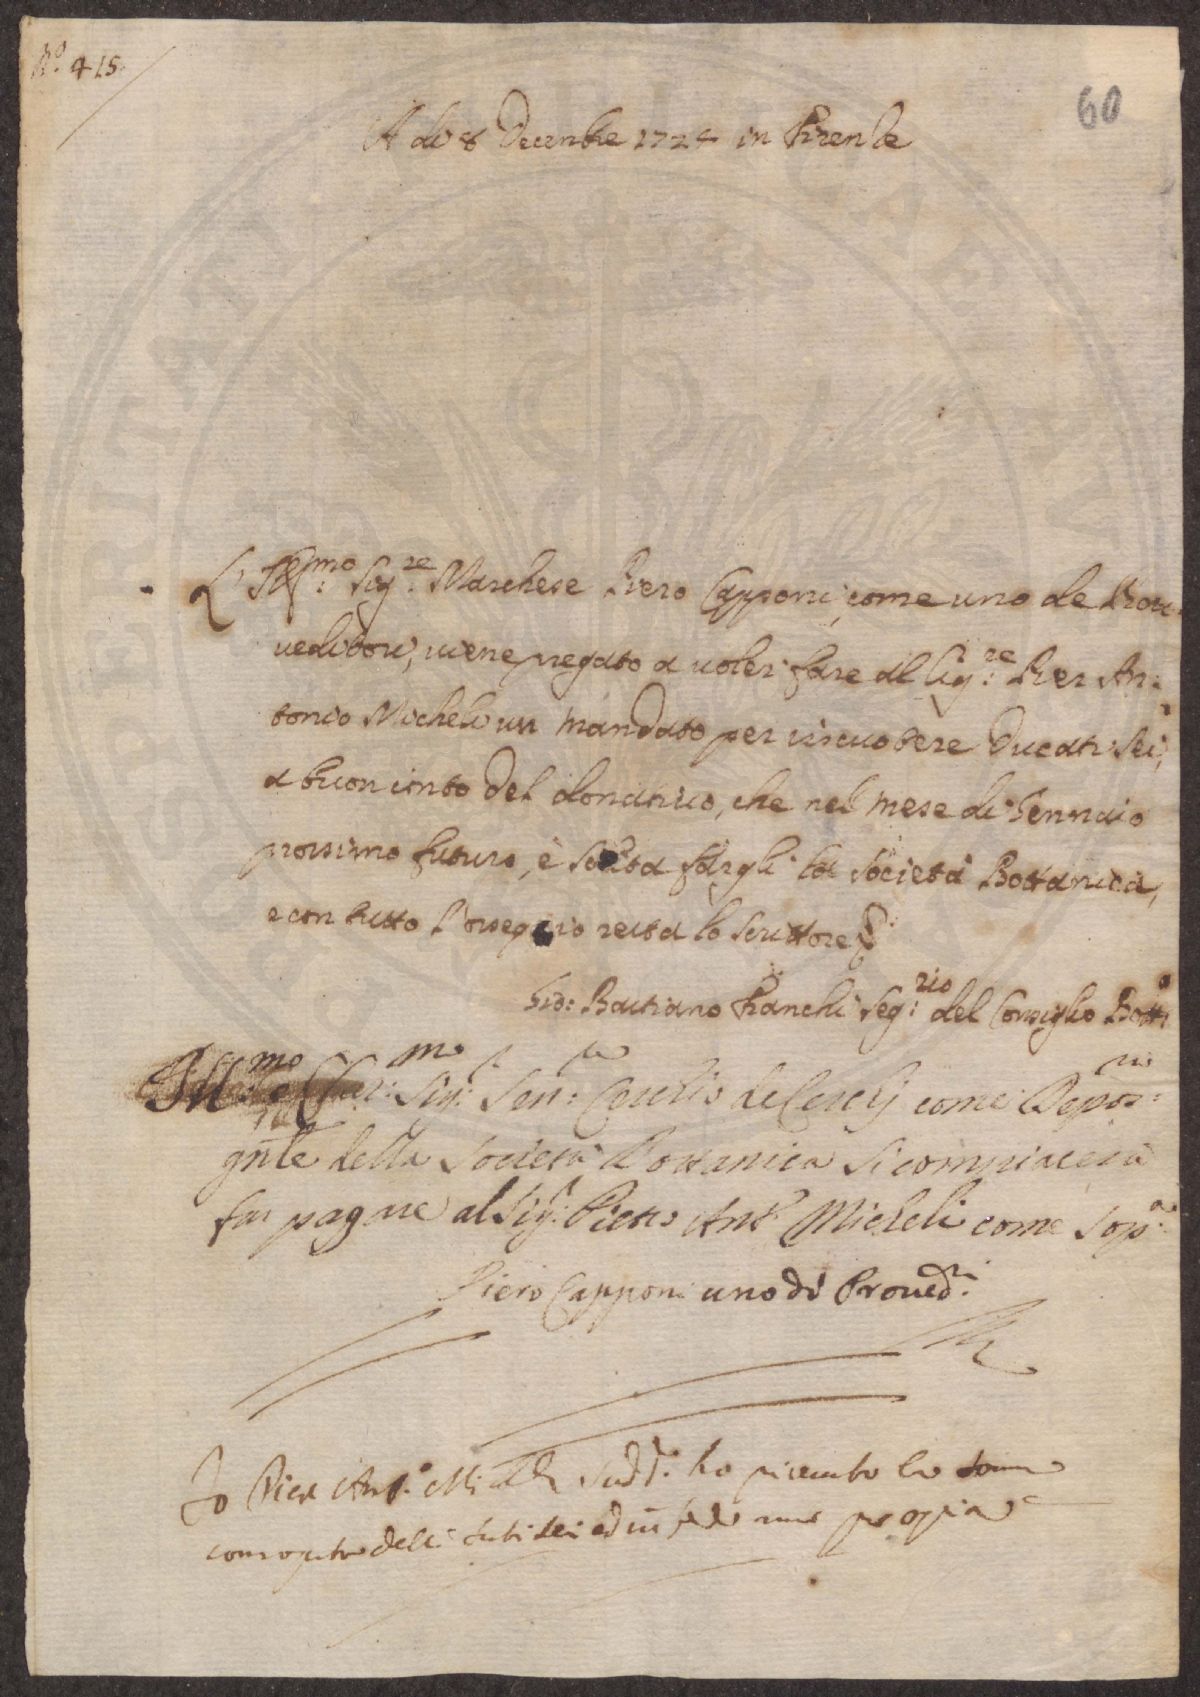 N.o 415.
60
A dì 8 Decenbre 1724 in Firenze
L'Ill:mo Sig:re Marchese Piero Capponi, come uno de Prov-
ueditori, viene pregato a voler fare al Sig:re Pier An:
tonio Micheli un mandato per riscuotere Ducati Sei,
a buon conto del donativo, che nel mese di Gennaio
prossimo futuro, è solita fargli la Società Bottanica,
e con tutto l'ossequio resta lo scrittore
Gio: Bastiano Franchi Seg:rio del Consiglio Bott:o
Ill:mo e Clar:mo Sig:r Sen:re Cerchi come Depos:rio
gnle della Società Bottanica si compiacerà
far pagare al Sig:r Pietro Ant:o Micheli come sop:a
Piero Capponi uno di Proved:ri
Io Pier Ant:o Micheli Sudd:o ho ricevuto la somma
come sopra delli scudi sei ed in fede mano propria